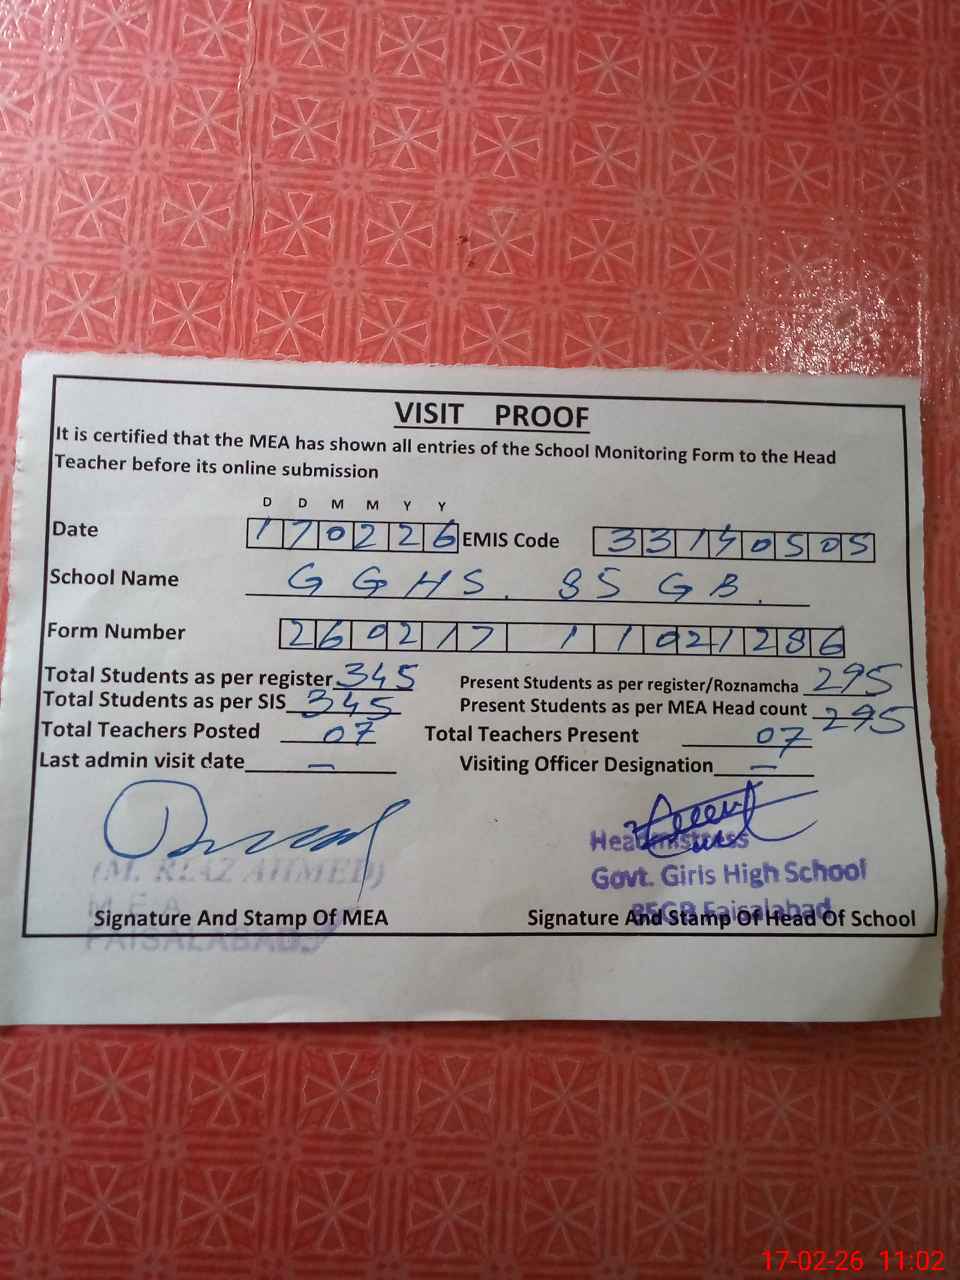 VISIT PROOF
It is certified that the MEA has shown all entries of the School Monitoring Form to the Head
Teacher before its online submission
D D M M Y Y
Date 170226 EMIS Code 33140505
School Name GGHS. 85 GB.
Form Number 2602171 11021286
Total Students as per register 345 Present Students as per register/Roznamcha 295
Total Students as per SIS 345 Present Students as per MEA Head count 295
Total Teachers Posted 07 Total Teachers Present 07
Last admin visit date — Visiting Officer Designation —
(M. RIAZ AHMED)
M.E.A
FAISALABAD
Headmistress
Govt. Girls High School
85GB Faisalabad
Signature And Stamp Of MEA Signature And Stamp Of Head Of School
17-02-26 11:02